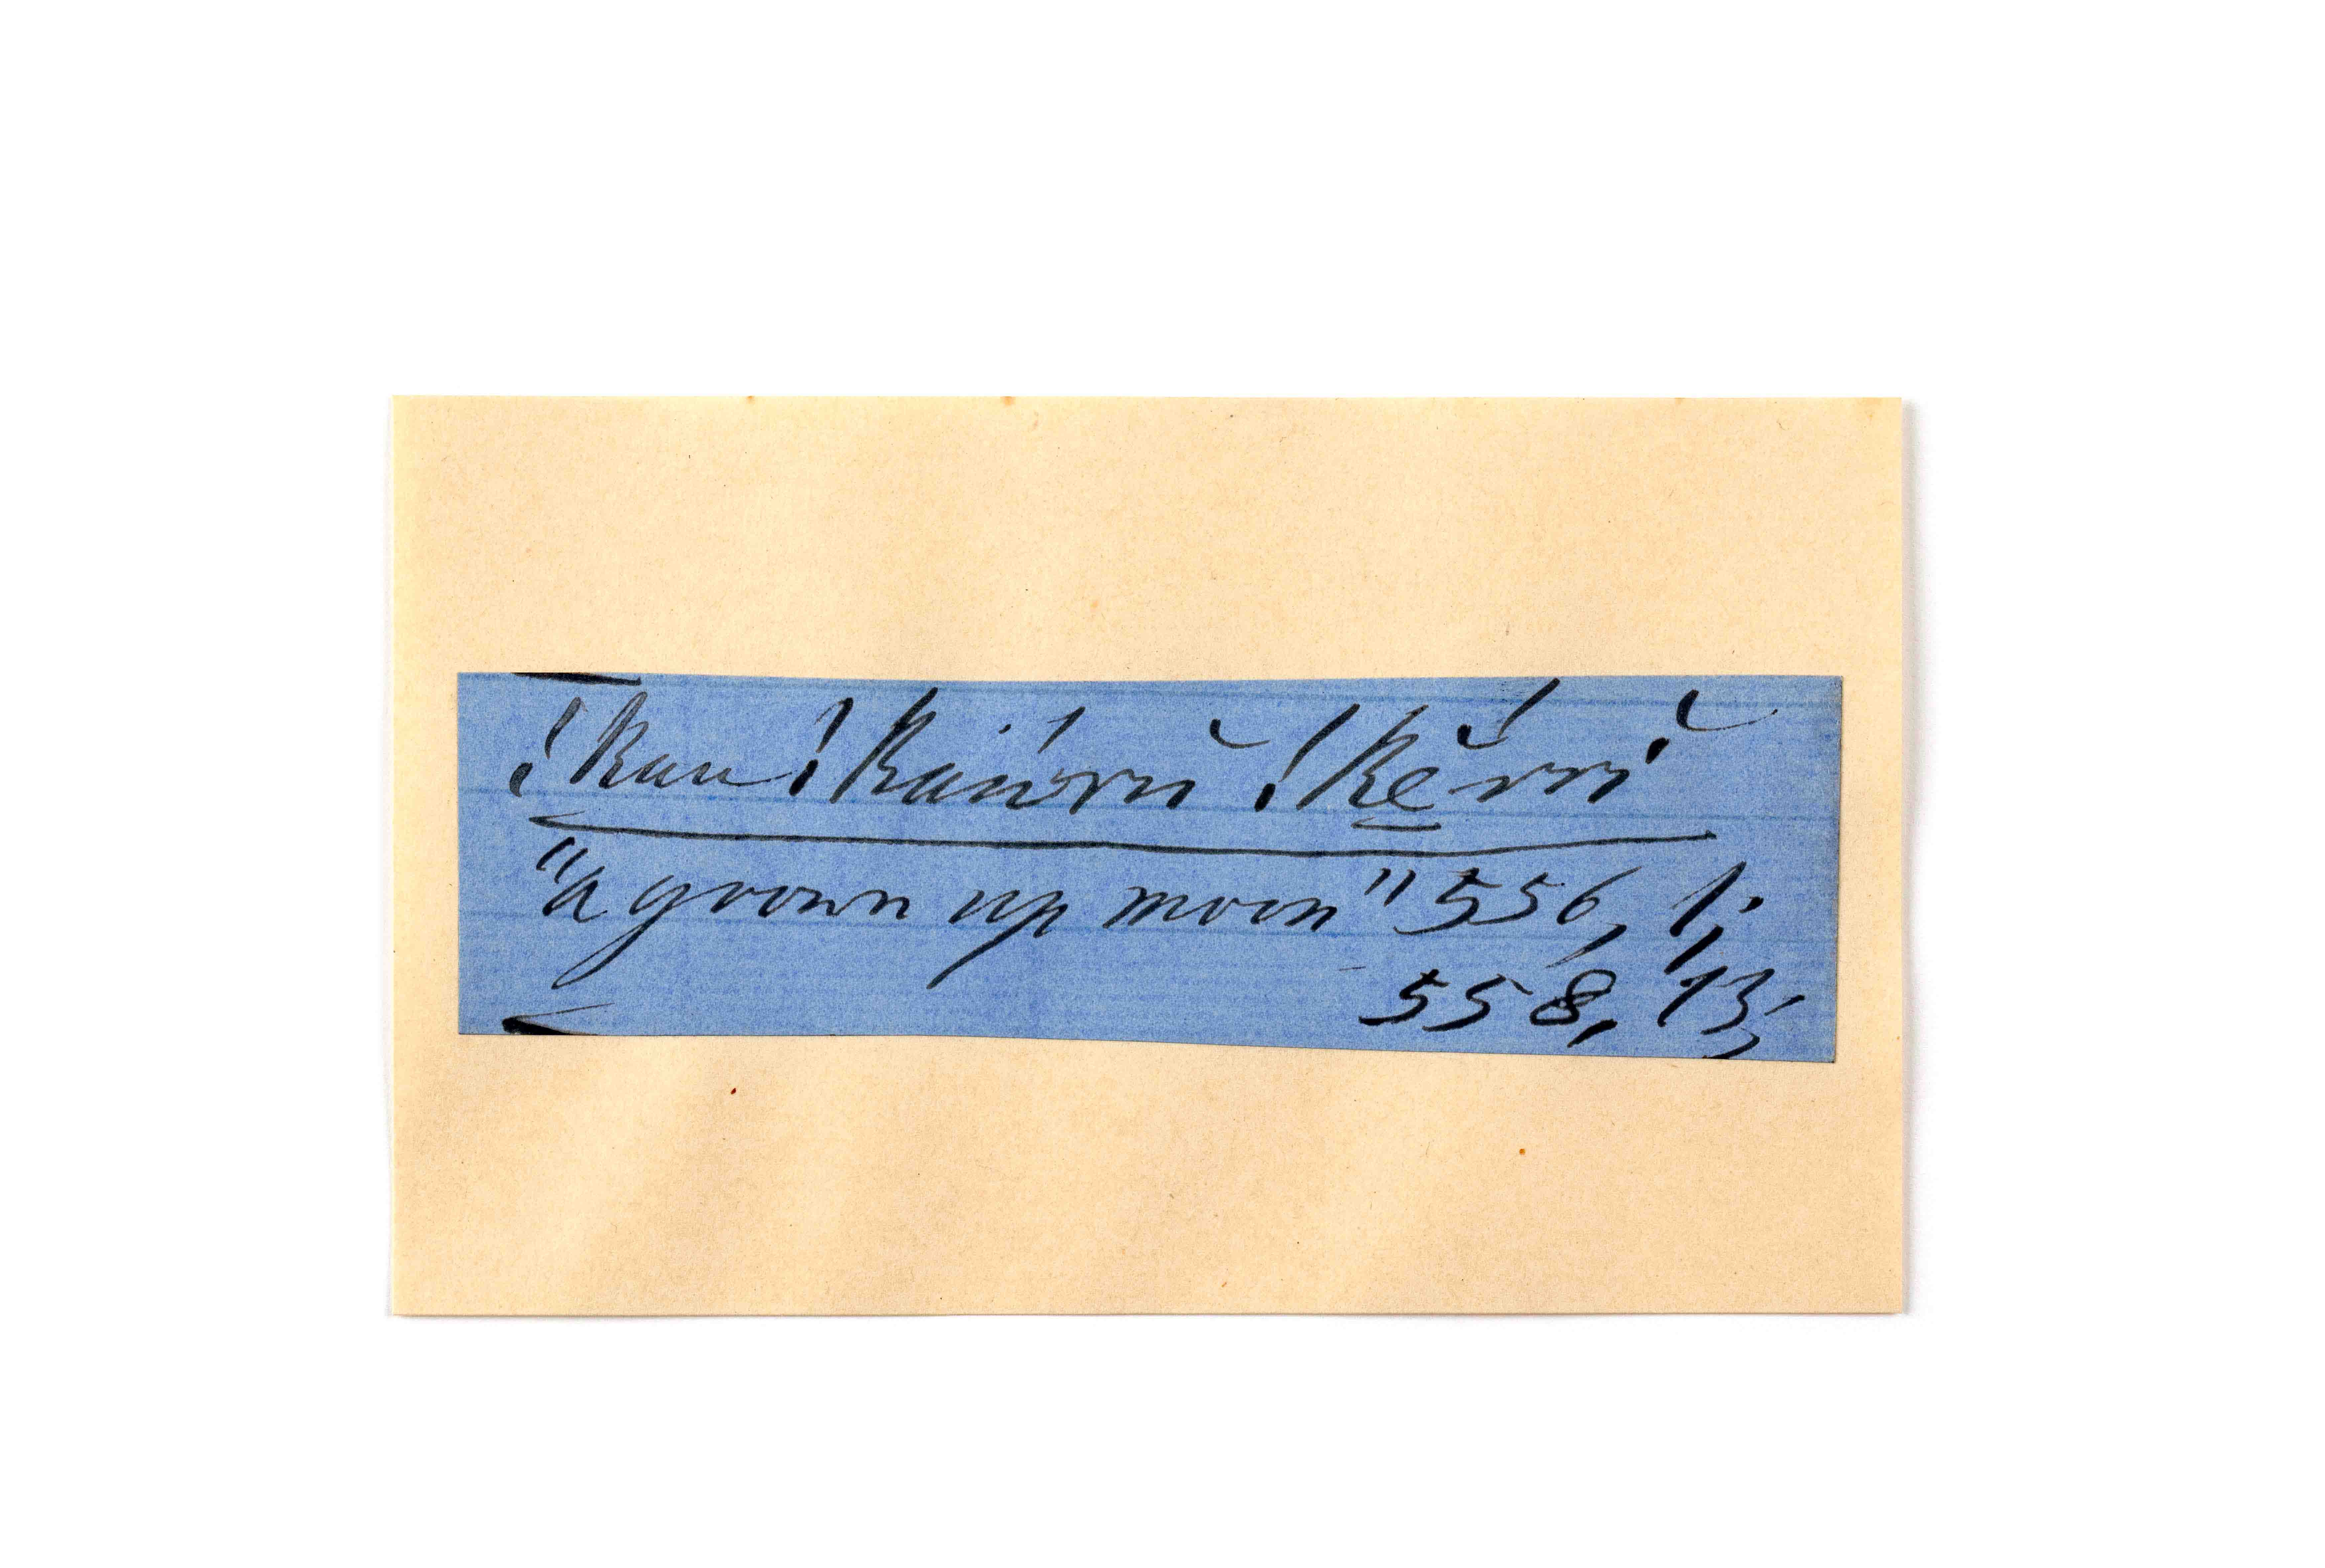 !kau !kaúrŭ !kĕ̱́rrĭ
"a grown up moon" 556, 1.
558, 13,